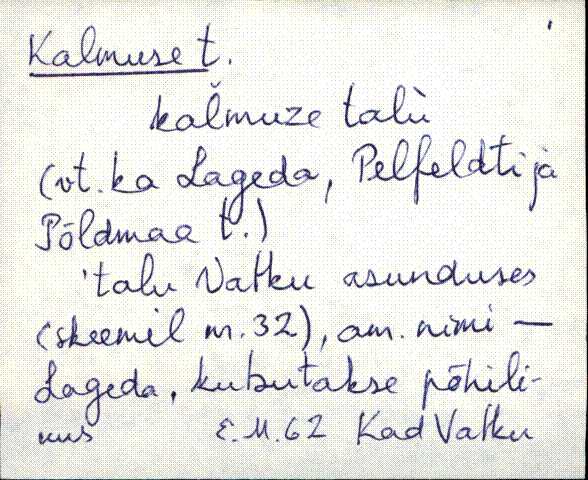 Kalmuse t.
kal̆muze talù
(vt. ka Lageda, Pelfeldti ja
Põldmaa t.)
'talu Vatku asunduses
(skeemil nr. 32), am. nimi —
Lageda, kutsutakse põhili-
nus
E.M.62 Kad Vatku